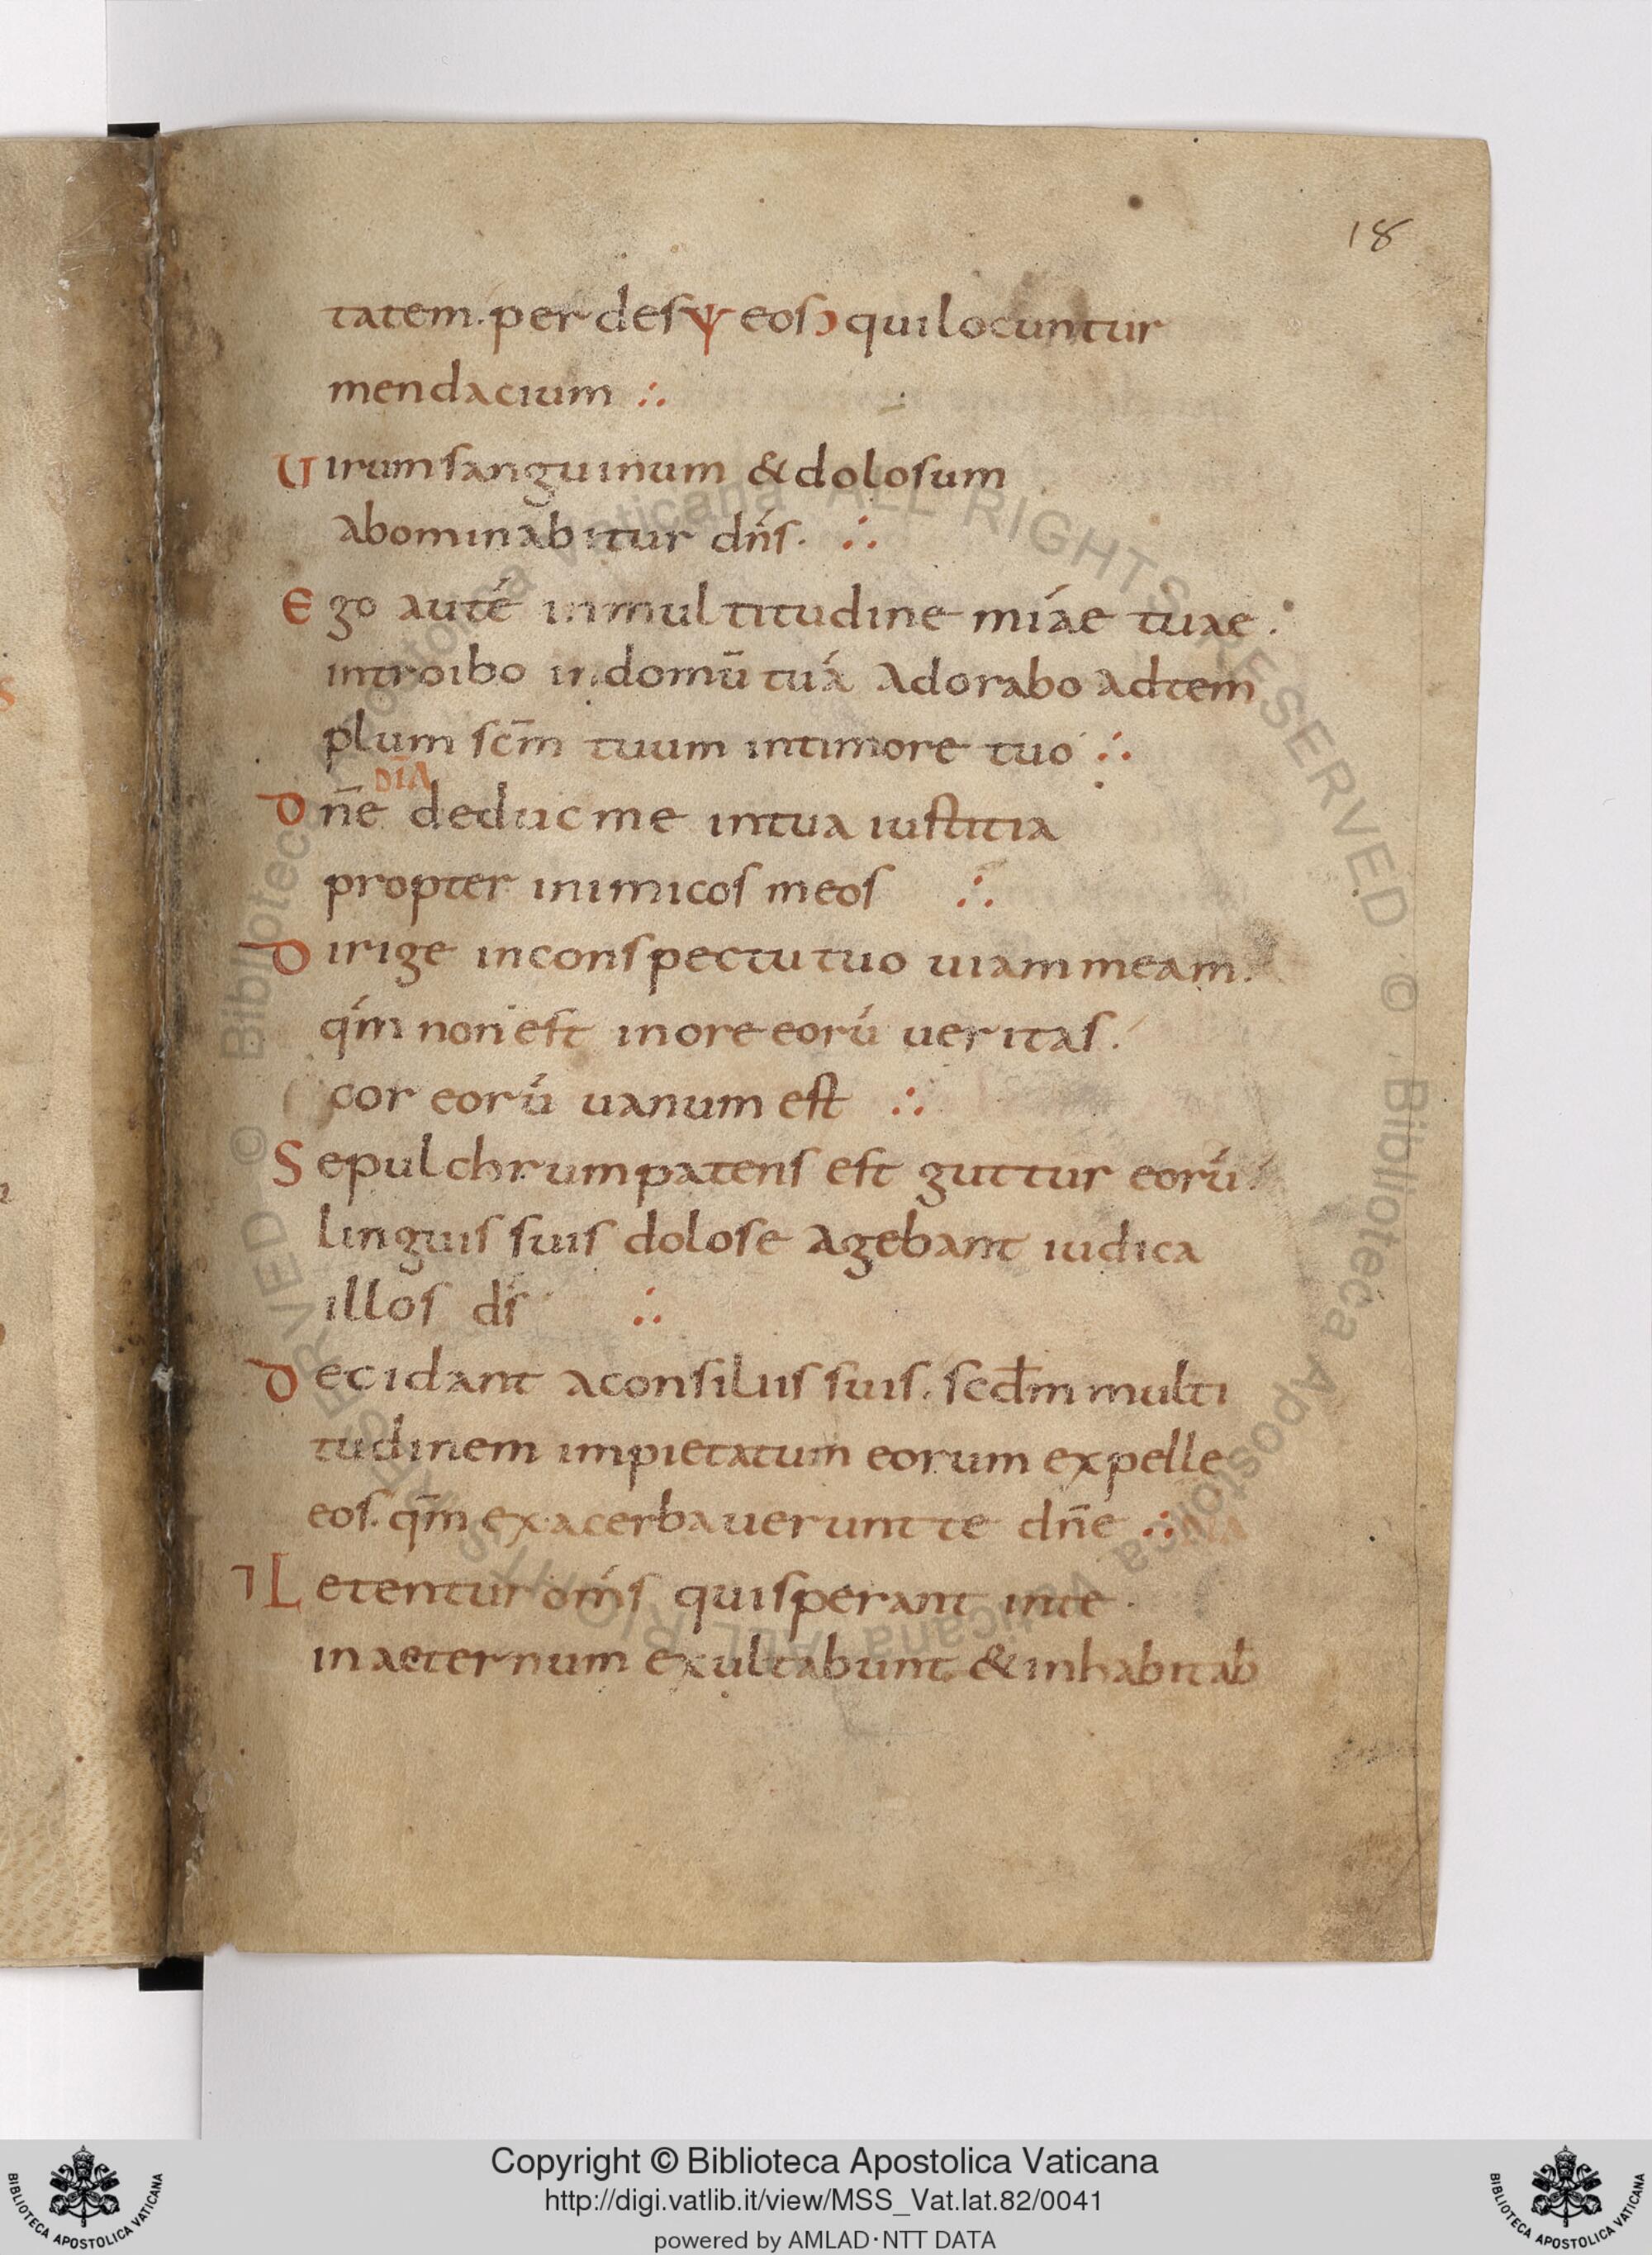 18
tatem. perdes ψ eos ↄ quilocuntur
mendacium ∴
Uirum sanguinum & dolosum
abominabitur dn̄s. ∴
Ego auté in multitudine miáe tuae.
introibo in domū tuá Adorabo ad tem
plum sc̄m tuum in timore tuo ∴
DIA
Dn̄e deduc me in tua iustitia
propter inimicos meos ∴
Dirige in conspectu tuo uiam meam.
qḿ non est in ore eorú ueritas.
cor eorú uanum est ∴
Sepulchrum patens est guttur eorú
linguis suis dolose Agebant iudica
illos dś ∴
Decidant a consiliis suis. scdm̄ multi
tudinem impietatum eorum expelle
eos. qm̄ exacerbauerunt te dn̄e ∴
⁊ Letentur oḿs qui sperant in te.
in aeternum exultabunt. & inhabitab
Copyright © Biblioteca Apostolica Vaticana
http://digi.vatlib.it/view/MSS_Vat.lat.82/0041
powered by AMLAD·NTT DATA